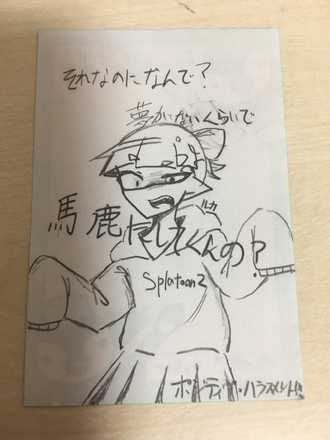 それなのになんで?
夢がないくらいで
馬鹿にしてくんの?
バカ
Splatoon2
ポジティブ・ハラスメント!!